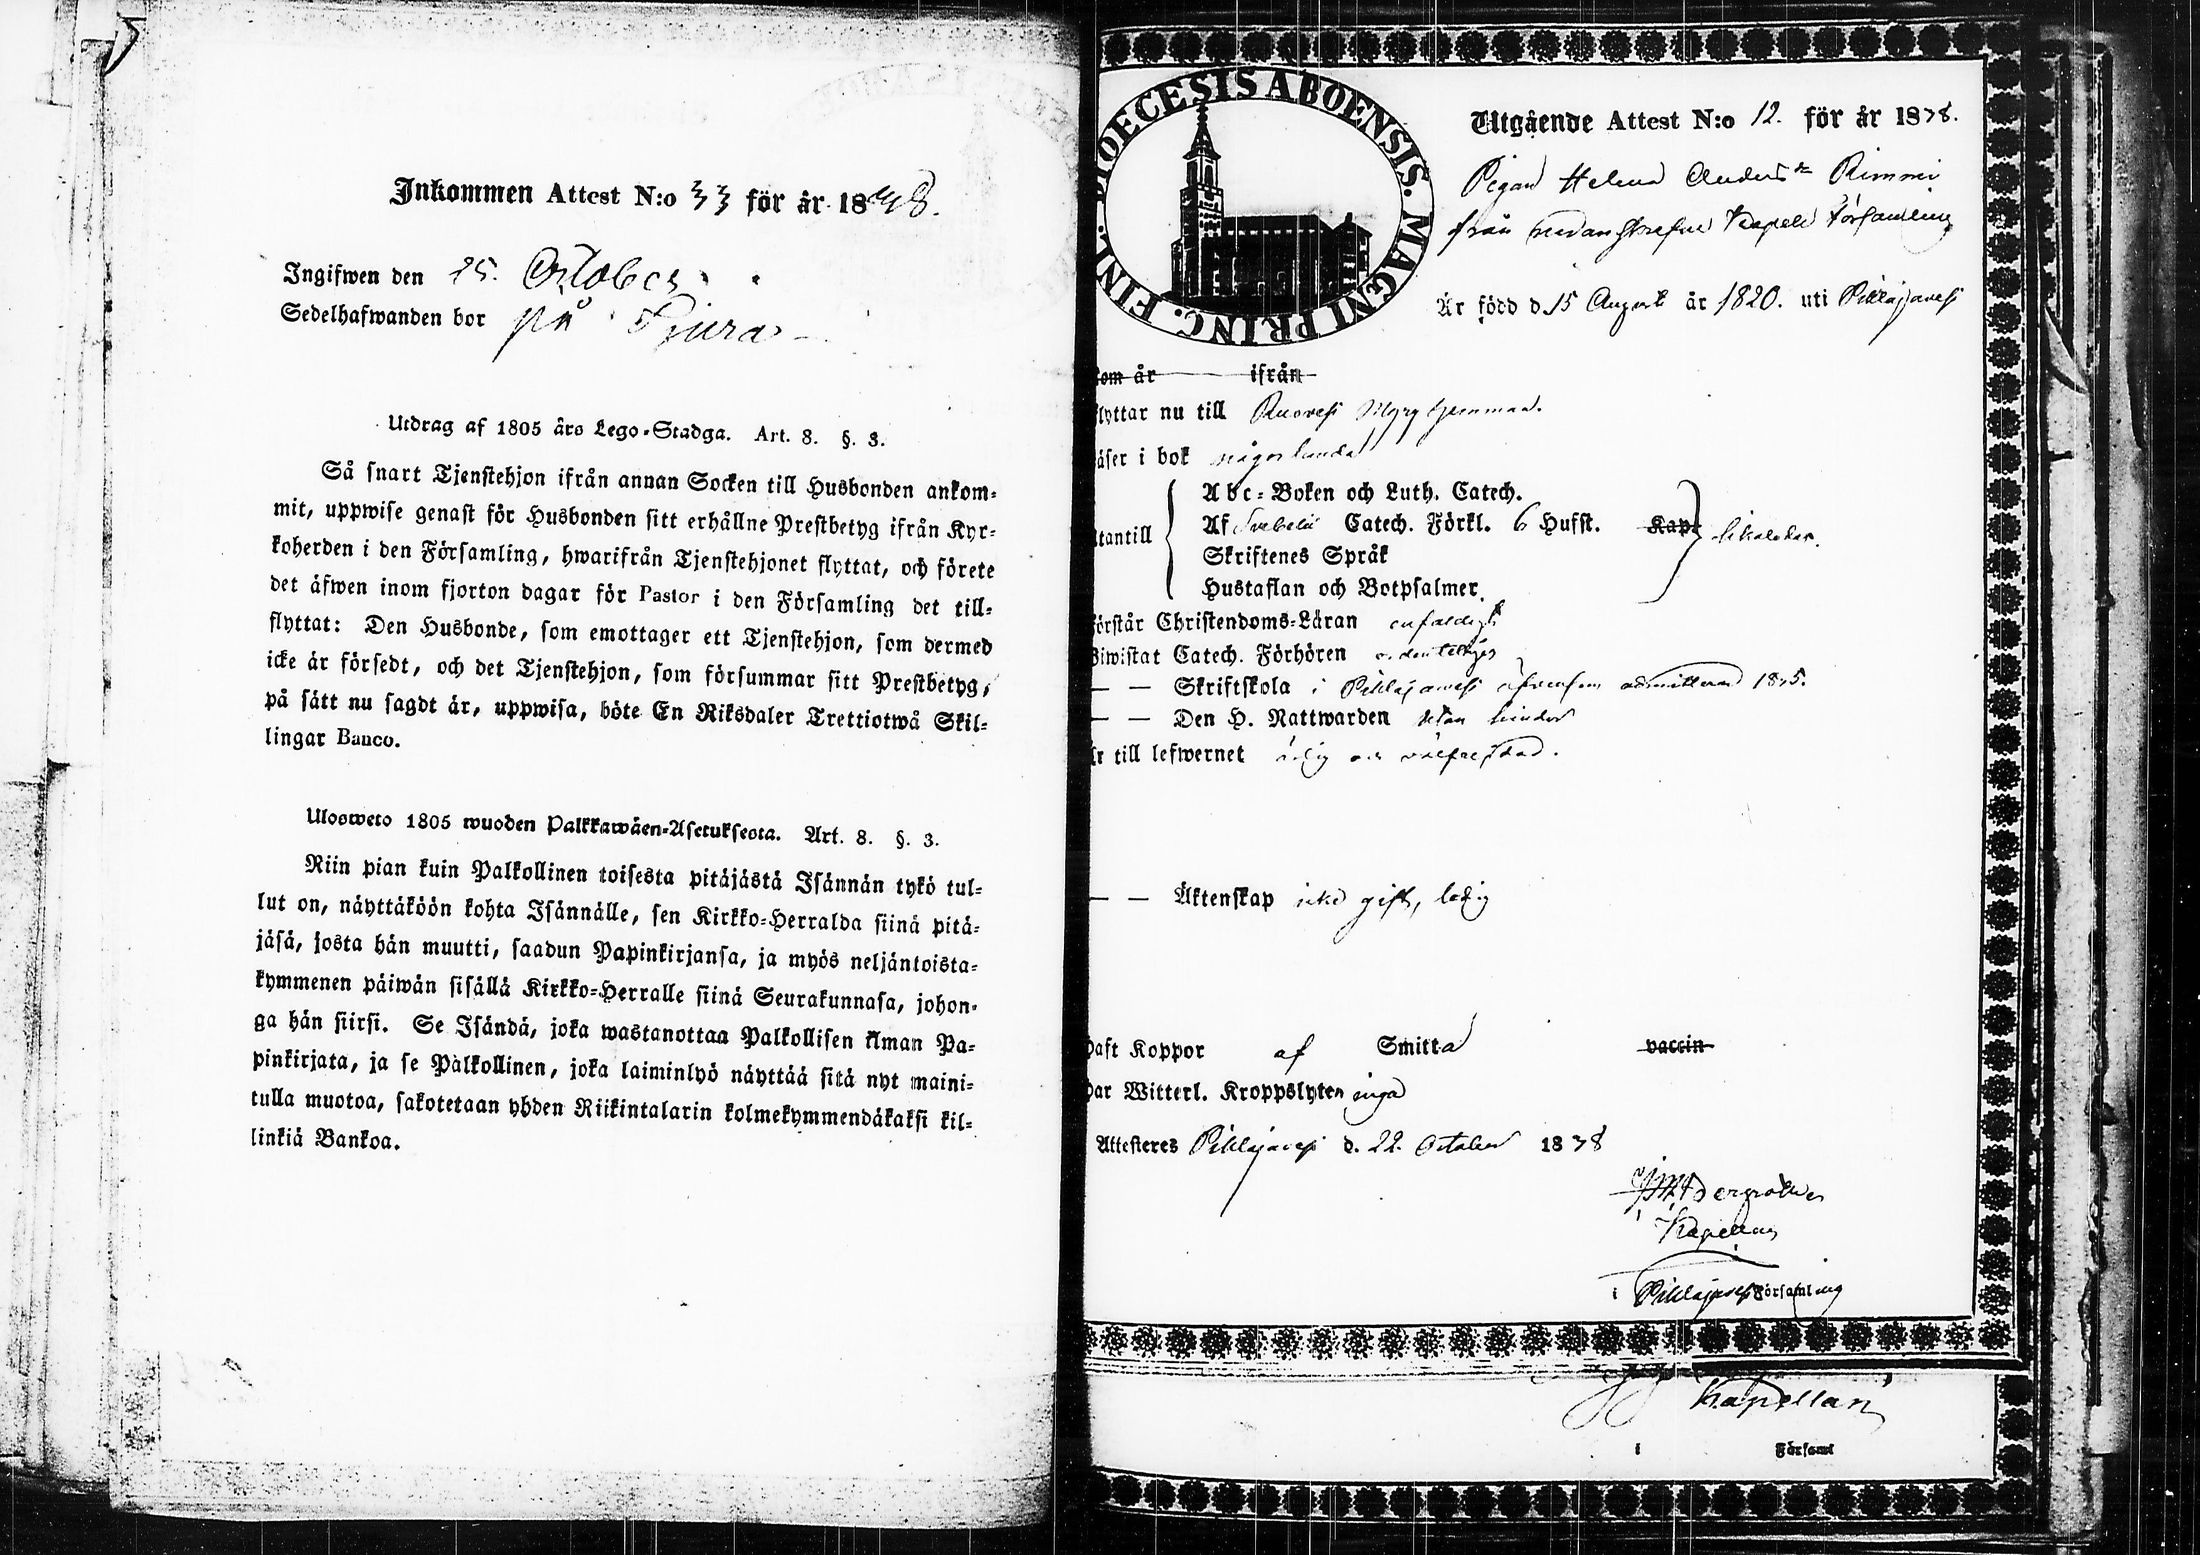 Inkommen Attest N:o 33 för år 1838.
Ingifwen den 25. October
Sedelhafwanden bor på
Utdrag af 1805 års Lego-Stadga. Art. 8. §. 3.
Så snart Tjenstehjon ifrån annan Socken till Husbonden ankom-
mit, uppwise genast för Husbonden sitt erhållne Prestbetyg ifrån Kyr-
koherden i den Församling, hwarifrån Tjenstehjonet flyttat, och förete
det äfwen inom fjorton dagar för Pastor i den Församling det till-
flyttat: Den Husbonde, som emottager ett Tjenstehjon, som dermed
icke är försedt, och det Tjenstehjon, som försummar sitt Prestbetyg,
på sätt nu sagdt är, uppwisa, böte En Riksdaler Trettiotwå Skil-
lingar Banco.
Ulosweto 1805 wuoden Palkkawäen-Asetuksesta. Art. 8. §. 3.
Niin pian kuin Palkollinen toisesta pitäjästä Isännän tykö tul-
lut on, näyttäköön kohta Isännälle, sen Kirkko-Herralda siinä pitä-
jäsä, josta hän muutti, saadun Papinkirjansa, ja myös neljäntoista-
kymmenen päiwän sisällä Kirkko-Herralle siinä Seurakunnasa, johon-
ga hän siirsi. Se Isändä, joka wastanottaa Palkollisen ilman Pa-
pinkirjata, ja se Palkollinen, joka laiminlyö näyttää sitä nyt maini-
tulla muotoa, sakotetaan yhden Riikintalarin kolmekymmendäkaksi kil-
linkiä Bankoa.
DIOECESIS ABOENSIS. MAGNI PRINC. FINL.
Utgående Attest N:o 12. för år 1838.
Pigan Helena Anders Rimmi
från nedanskrefne Kapell Församling
Är född d. 15 Augusti år 1820. uti Pihlajavesi
kom år ifrån
flyttar nu till Ruovesi
läser i bok någorlunda
utantill
Abc-Boken och Luth. Catech.
Af Svebelii Catech. Förkl. 6 Hufst. Kap.
Skriftenes Språk
Hustaflan och Botpsalmer.
förstår Christendoms-Läran enfaldigt
Biwistat Catech. Förhören ordentligen
— — Skriftskola i Pihlajavesi admitterad 1835.
— — Den H. Nattwarden utan hinder
är till lefwernet ärlig och välfrejdad.
— — Äktenskap icke gift, ledig
haft Koppor af Smitta vaccin
har Witterl. Kroppslyten inga
Attesteres Pihlajavesi d. 22. October 1838
Kapellan
i Pihlajavesi Församling
Kapellan
i Församl